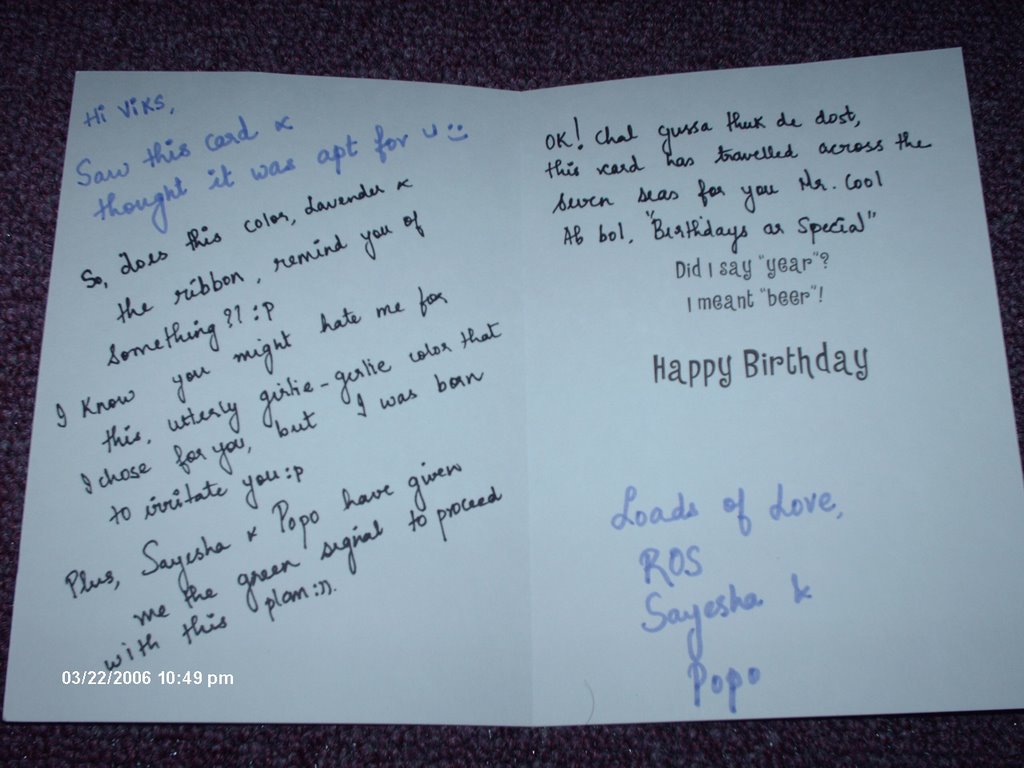 Hi Viks,
Saw this card &
thought it was apt for U :)
So, does this color, Lavender &
the ribbon, remind you of
something?? :p
I know you might hate me for
this, utterly girlie-girlie color that
I chose for you, but I was born
to irritate you :p
Plus, Sayesha & Popo have given
me the green signal to proceed
with this plan :)).
03/22/2006 10:49 pm
OK! Chal gussa thuk de dost,
this card has travelled across the
seven seas for you Mr. Cool
Ab bol, "Birthdays ar Special"
Did I say "year"?
I meant "beer"!
Happy Birthday
Loads of Love,
ROS
Sayesha &
Popo